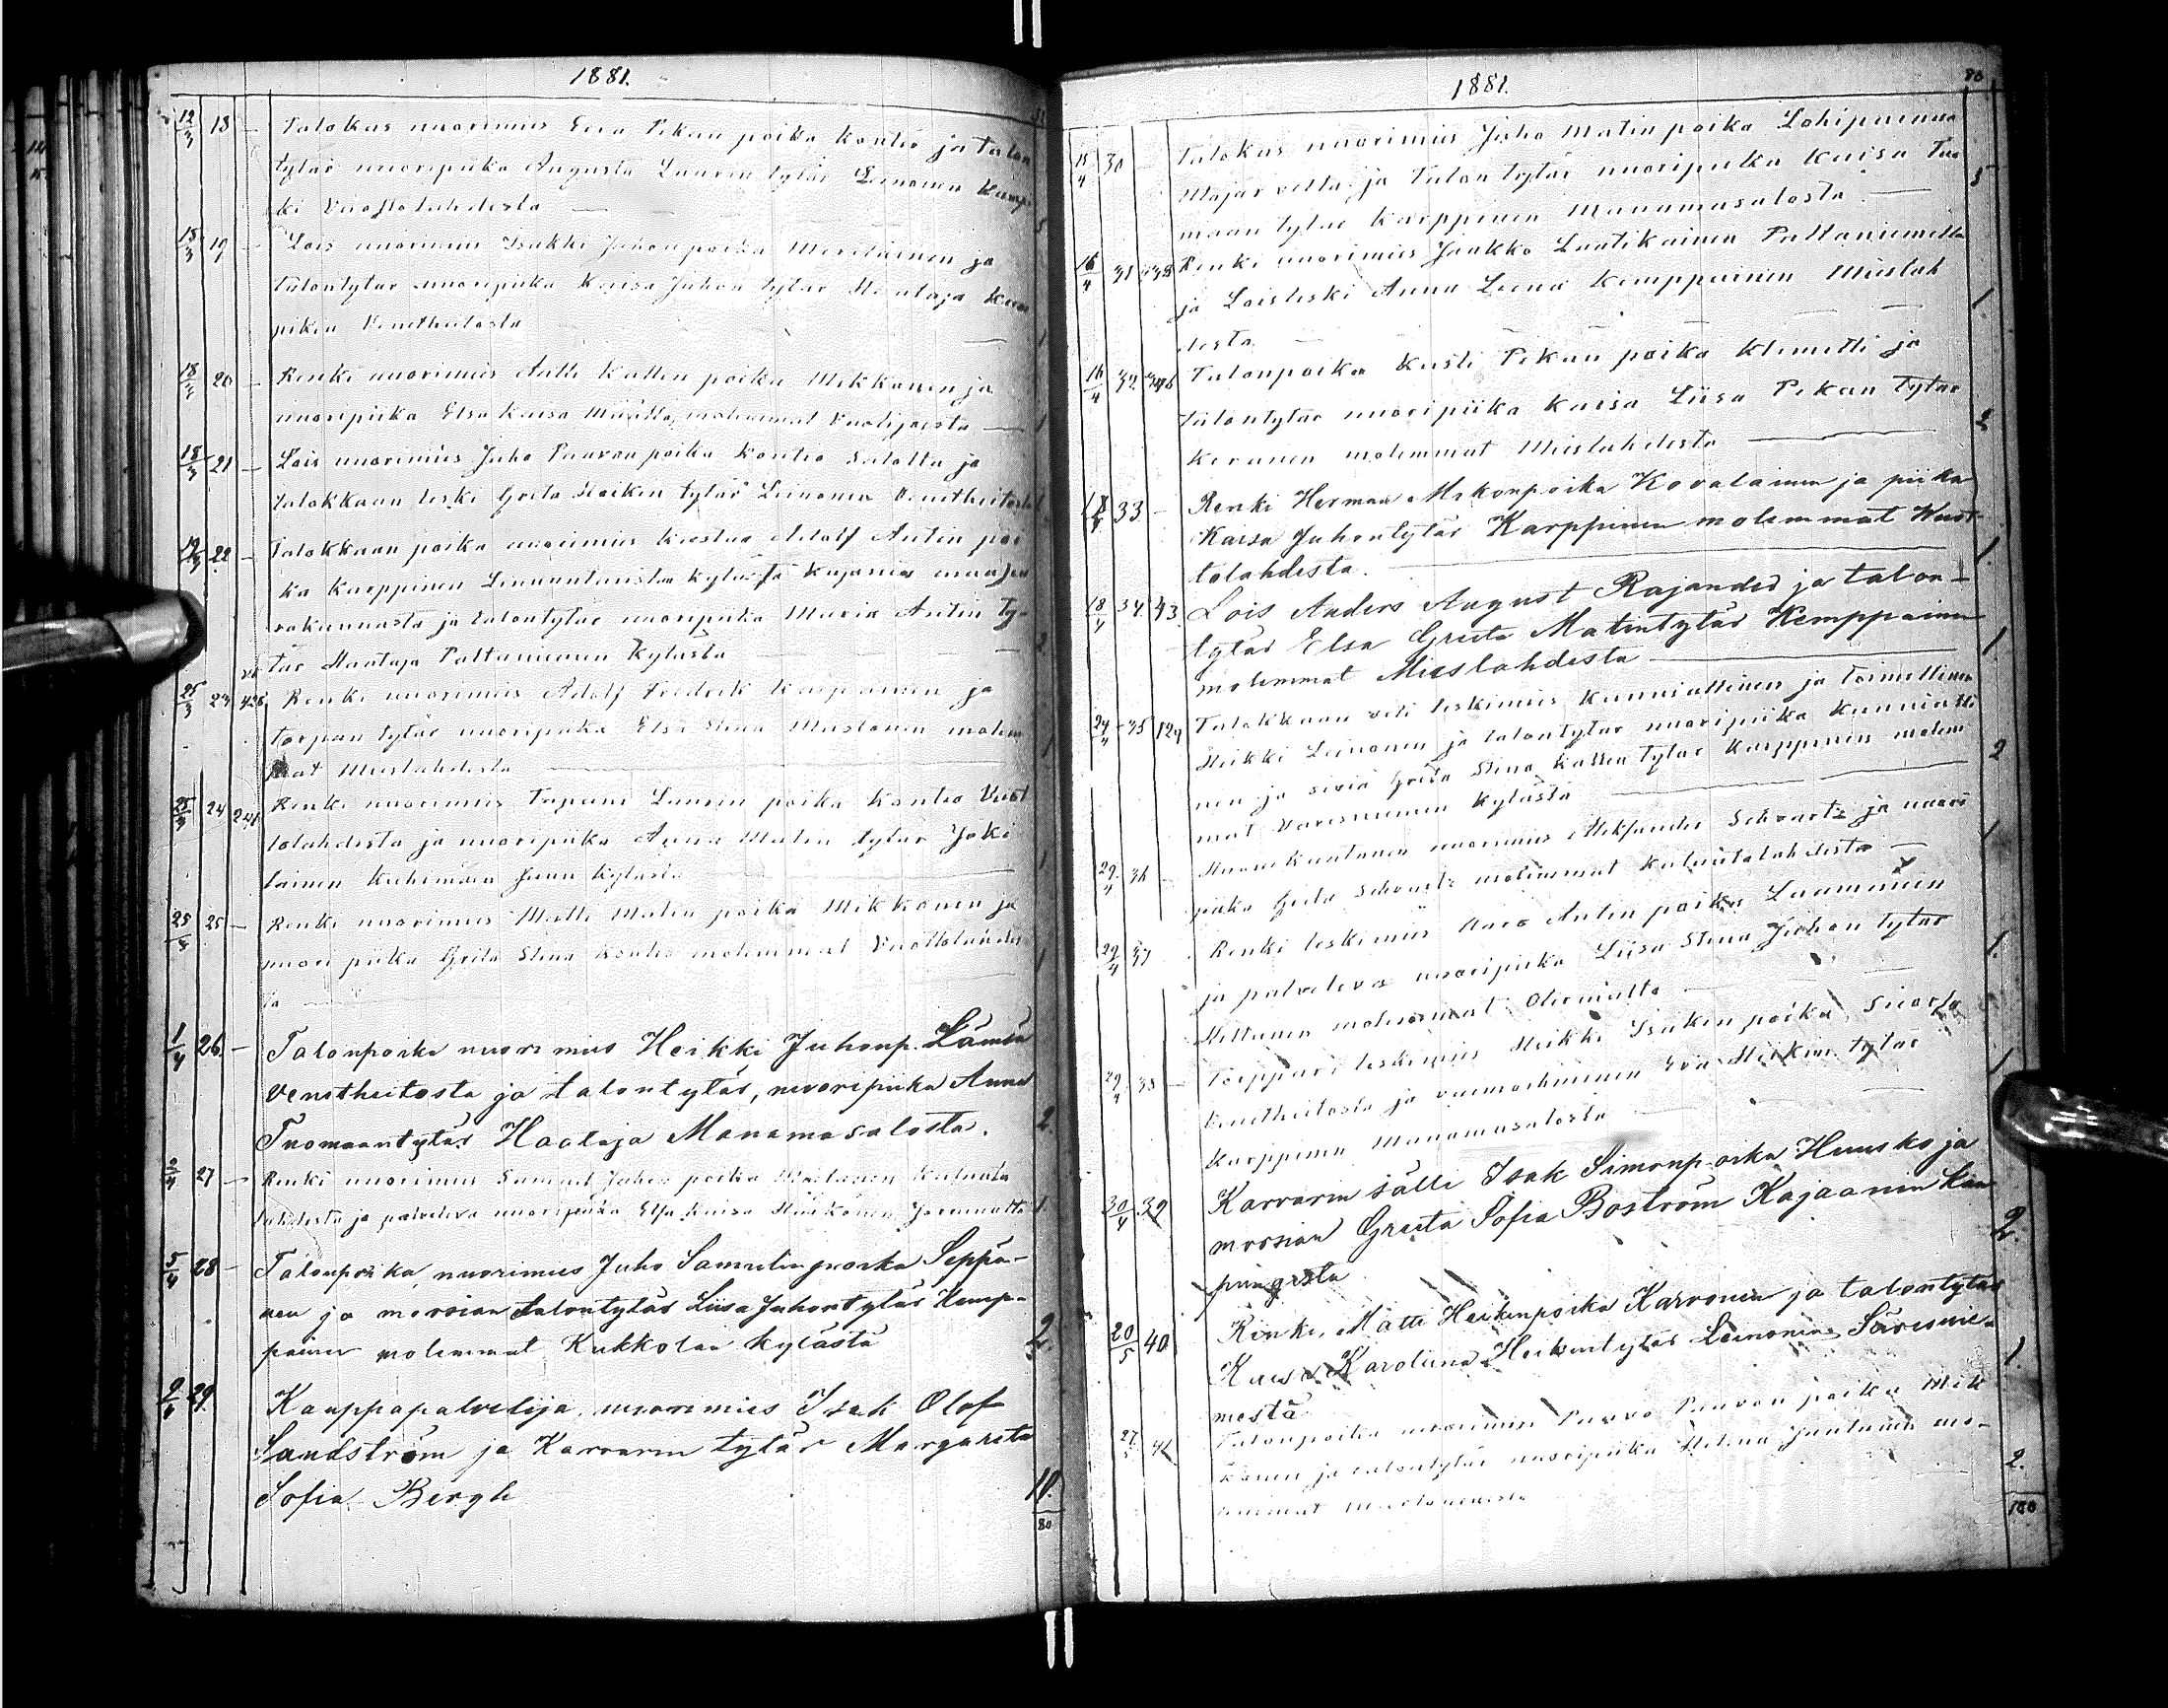 1881.
12/3 18 — Talokas nuorimies Eera Pekan poika Kontio ja talon
tytär nuoripiika Augusta Laurin tytär Leinonen Kump
ki Vuottolahdesta — 5
15/3 19 — Lois nuorimies Isakki Juhon poika Meriläinen ja
talontytär nuoripiika Kaisa Juhon tytär Hautaja kum
pikin Venetheitosta — 1
18/3 20 — Renki nuorimies Antti Kallen poika Mikkonen ja
nuoripiika Elsa Kaisa Määttä molemmat Vuolijoesta — 1
18/3 21 — Lois nuorimies Juho Paavon poika Kontio Salotta ja
talokkaan leski Greta Heikin tytär Leinonen Venetheitosta 1
19/3 22 — Talokkaan poika nuorimies Kustaa Adolf Antin poi
ka Karppinen kylästä Kajanin maaseu
rakunnasta ja talontytär nuoripiika Maria Antin ty-
tär Hautaja Paltaniemen kylästä — 2
25/3 23 428 Renki nuorimies Adolf Fredrik Karppinen ja
torpan tytär nuoripiika Elsa Stina Mustonen molem
mat Mieslahdesta — 1
25/3 24 241 Renki nuorimies Tapani Laurin poika Kontio Vuot
tolahdesta ja nuoripiika Anna Matin tytär Joki
lainen kylästä — 1
25/3 25 — Renki nuorimies Matti Matin poika Mikkonen ja
nuori piika Greta Stina Kontio molemmat Vuottolahdes
ta — 1
1/4 26 — Talonpoika nuorimies Heikki Juhonp. Lämsä
Venetheitosta ja talontytär, nuoripiika Anna
Tuomaantytär Haataja Manamasalosta. 2.
2/4 27 — Renki nuorimies Samuel Juhon poika Kaluuta
lahdesta ja palveleva nuoripiika Elsa Kaisa Jormualta 1
5/4 28 — Talonpoika, nuorimies Juho Samulinpoika Seppä-
nen ja morsian talontytär Liisa Juhontytär Kemp-
painen molemmat Kukkolan kylästä 2.
9/4 29. Kauppapalvelija, nuorimies Isak Olof
Sandström ja Karvarin tytär Margareta
Sofia Bergh 10.
80
1881.
80
15/4 30 Talokas nuorimies Juho Matin poika Lohipuunaa
Utajärveltä ja talon tytär nuoripiika Kaisa Tuo 5
maan tytär Karppinen Manamasalosta —
16/4 31 Renki nuorimies Jaakko Luutikainen Paltaniemeltä
ja Loisleski Anna Leena Kemppainen Mieslah 1
desta —
16/4 32 Talonpoika Kusti Pekan poika Klemetti ja
talontytär nuoripiika Kaisa Liisa Pekan tytär
Keränen molemmat Mieslahdesta —
18/4 33 — Renki Herman Mikonpoika Kovalainen ja piika
Kaisa Juhontytär Karppinen molemmat Wuot-
tolahdesta. — 1
18/4 34 43. Lois Anders August Rajander ja talon-
tytär Elsa Greeta Matintytär Kemppainen 1
molemmat Mieslahdesta —
24/4 35 129 Talokkaan veli leskimies kunniallinen ja toimellinen
Heikki Leinonen ja talontytär nuoripiika kunnialli
nen ja siviä Greta Stina Kallen tytär Karppinen molem 2
mat Varisniemen kylästä —
29/4 36 — Muonakuntanen nuorimies Aleksander Schvartz ja nuori 1
piika Greta Schvartz molemmat Kaluutalahdesta —
29/4 37 Renki leskimies Antin poika Laamanen
ja palveleva nuoripiika Liisa Stina Juhon tytär 1.
Hettunen molemmat —
29/4 38 — Torppari leskimies Heikki Isakin poika
Venetheitosta ja vaimoihminen Eva Heikin tytär 1
Karppinen Manamasalosta —
30/4 39 Karvarin sälli Isak Simonp oika Huusko ja
morsian Greeta Sofia Boström Kajaanin kau
pungista 2.
20/5 40 Renki, Matti Heikinpoika Karvonen ja talontytär
Kaisa Karoliina Heikintytär Leinonen Säresnie- 1.
mestä
27/5 41 Talonpoika nuorimies Paavo Paavon poika Mik
konen ja talontytär nuoripiika Helena Juntunen mo- 2.
lemmat
100